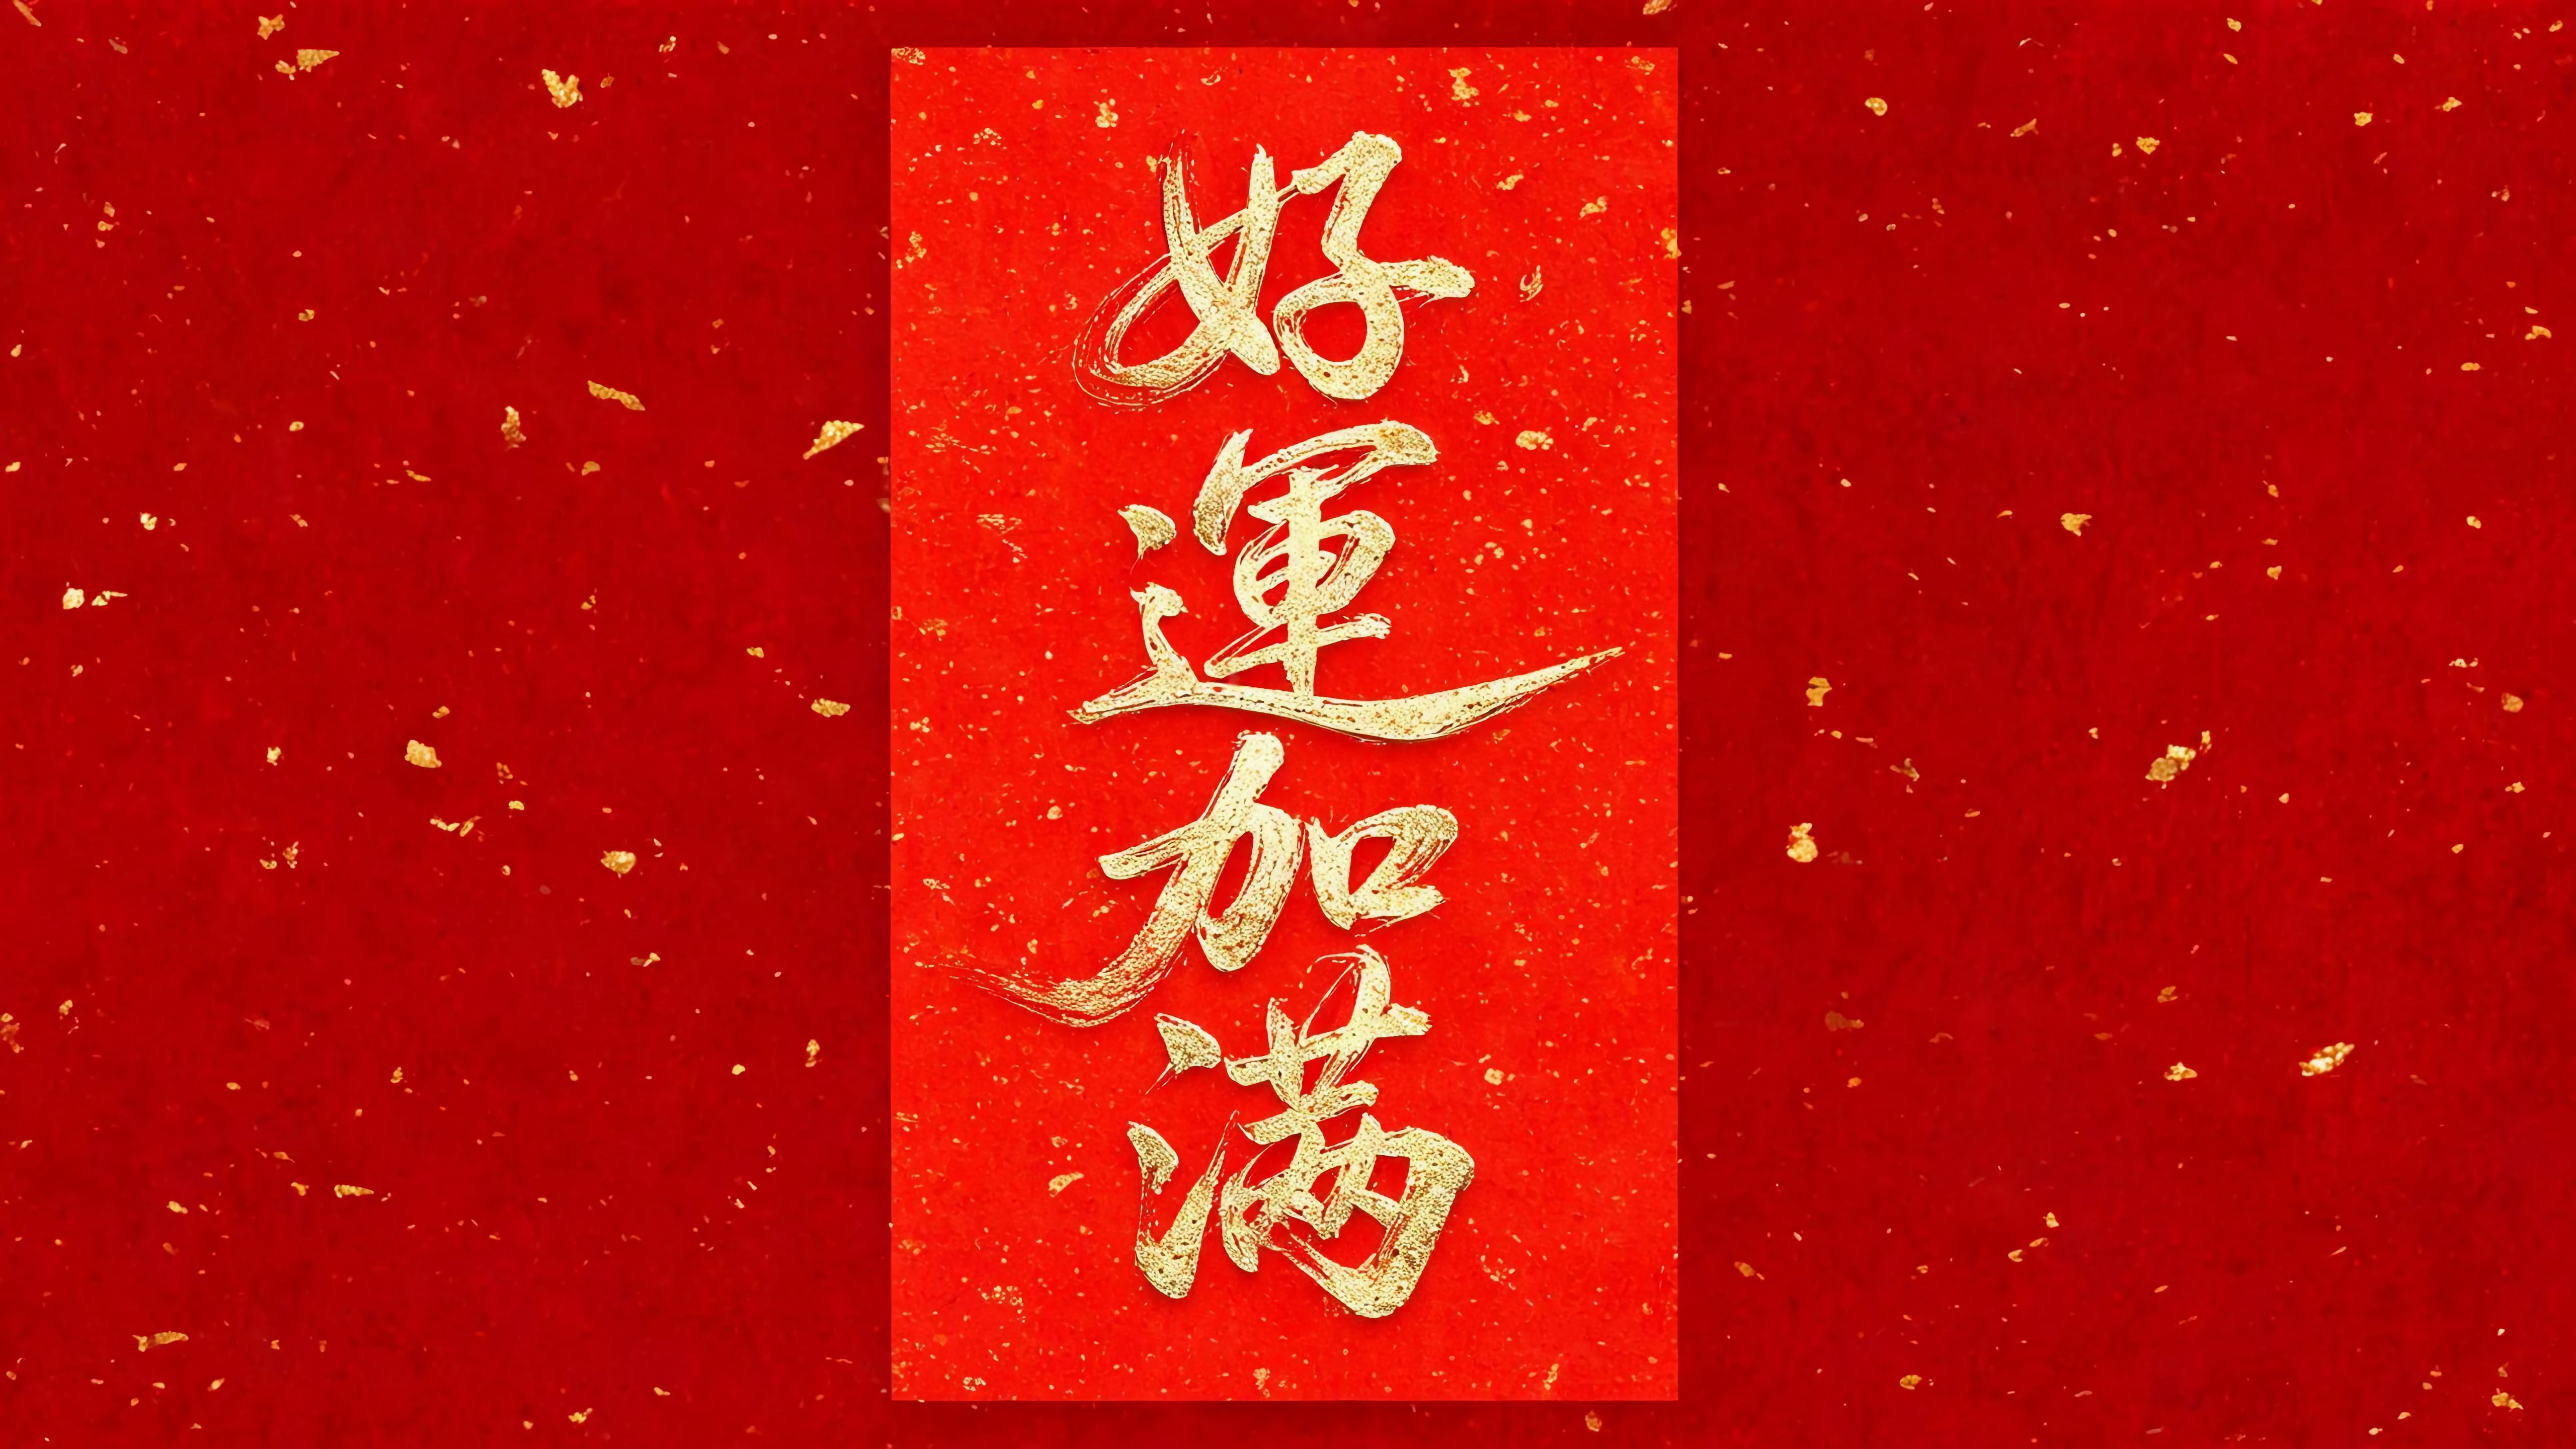 好運加滿